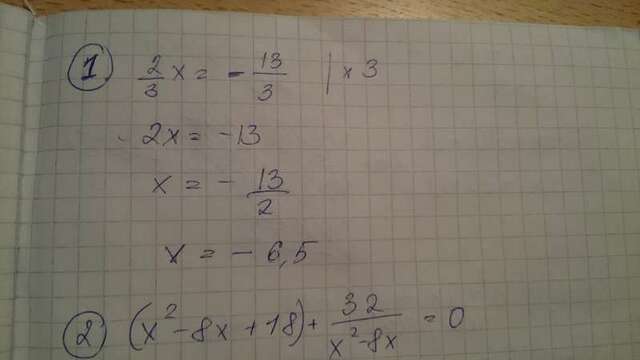 1 2/3 x = - 13/3 | × 3
2x = -13
x = - 13/2
x = - 6,5
2 (x² - 8x + 18) + 32/(x² - 8x) = 0